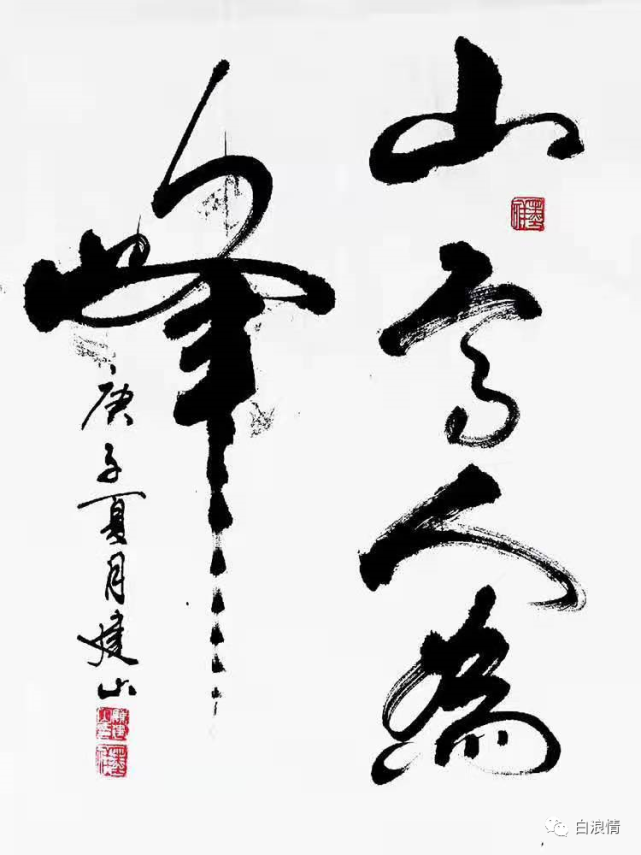 山高人為
峰
庚子夏月建山
白浪情